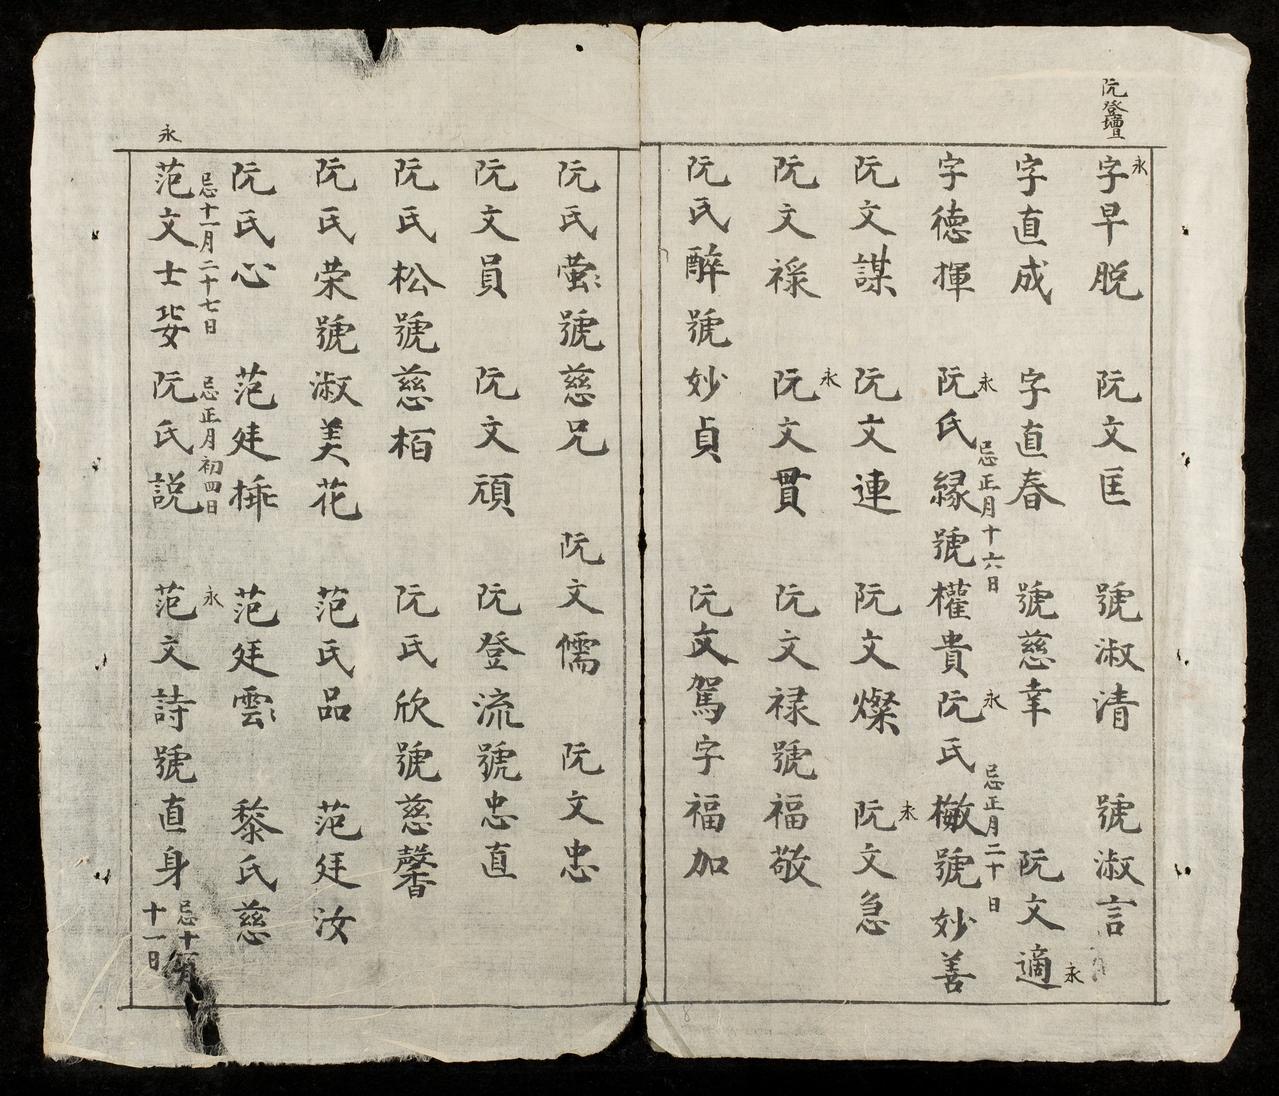 阮登壇
永
字早脱 阮文匡 號淑清 號淑言
字直成 字直春 號慈幸 阮文適 永
字德揮 永 阮氏緣號權貴 忌正月十六日 永 阮氏橄號妙善 忌正月二十日
阮文謀 阮文連 阮文燦 永 阮文急
阮文祿 永 阮文貫 阮文禄號福敬
阮氏醉號妙貞 阮文駕字福加
阮氏萤號慈兄 阮文儒 阮文忠
阮文員 阮文頑 阮登流號忠直
阮氏松號慈栢 阮氏欣號慈馨
阮氏荣號淑美花 范氏品 范廷汝
阮氏心 范廷 范廷雲 黎氏慈
永
范文士 忌十一月二十七日 阮氏説 忌正月初四日 永 范文詩號直身 忌十月十一日